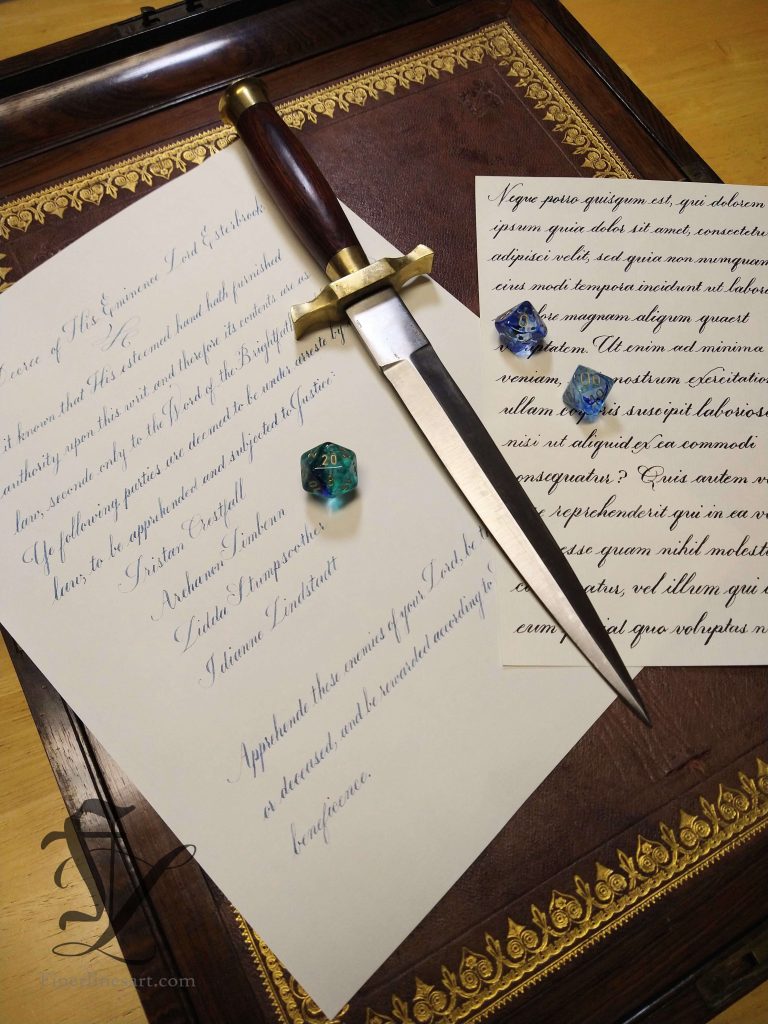 Decree of His Eminence Lord Esterbrook
it known that His esteemed hand hath furnished
authority upon this writ and therefore its contents are as
law, seconde only to the Word of the Brightfath
Ye following parties are deemed to be under arreste by
law, to be apprehended and subjected to Justice:
Tristan Crestfall
Archanon Limbenn
Lidda Stumpsoother
Idianne Lindstadt
Apprehende these enemies of your Lord, be
or deceased, and be rewarded according to
beneficence.
20
Neque porro quisqum est, qui dolorem
ipsum quia dolor sit amet, consectetu
adipisci velit, sed quia non numquam
eius modi tempora incidunt ut labor
ore magnam aliqum quaert
tatem. Ut enim ad minima
veniam, nostrum exercitatio
ullam corporis suscipit laborios
nisi ut aliquid ex ea commodi
onsequatur? Quis autem v
reprehenderit qui in ea vo
esse quam nihil molest
atur, vel illum qui
eum fugiat quo voluptas n
0
00
FL
Finerlinesart.com